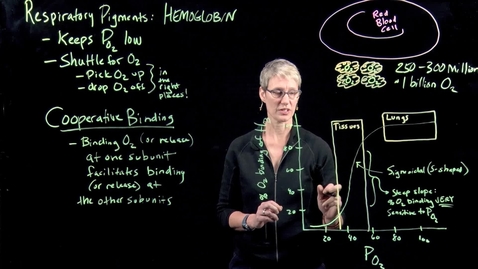 Respiratory Pigments: HEMOGLOBIN
- Keeps PO2 low
- Shuttle for O2
- Pick O2 up
- drop O2 off
in the right places!
Cooperative Binding
- Binding O2 (or release)
at one subunit
facilitates binding
(or release) at
the other subunits
Red
Blood
Cell
250-300 Million
~1 billion O2
Tissues
Lungs
Sigmoidal (S-shaped)
Steep slope:
O2 binding VERY
Sensitive to PO2
O2 Binding
80
60
40
20
20 40 60 80 100
PO2